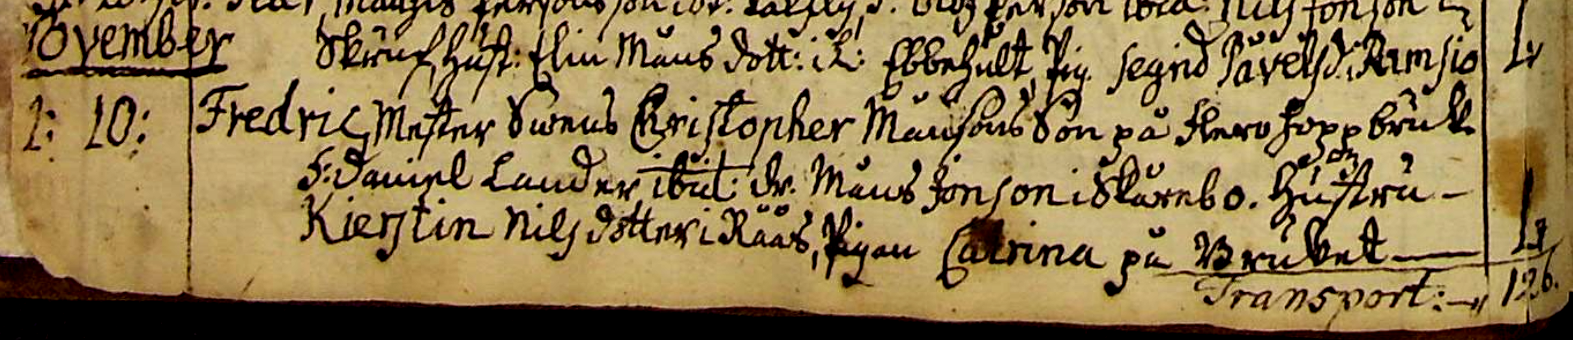 Mattis Persons son Nils Jonson
November Skruf, Hust: Elin Måns dott: i L: Ebbehult, Pig. Segrid Påvelsd. i Ramsiö
1: 10: Fredric, Mester Swens Christopher Månsons Son på Flerohopp bruk.
F: Daniel Lander ibid: dr. Måns Jonson i Skurebo. Hustru –
Kierstin Nils dotter i Råås, Pigan Catrina på Bruket —
Transport: — 126.